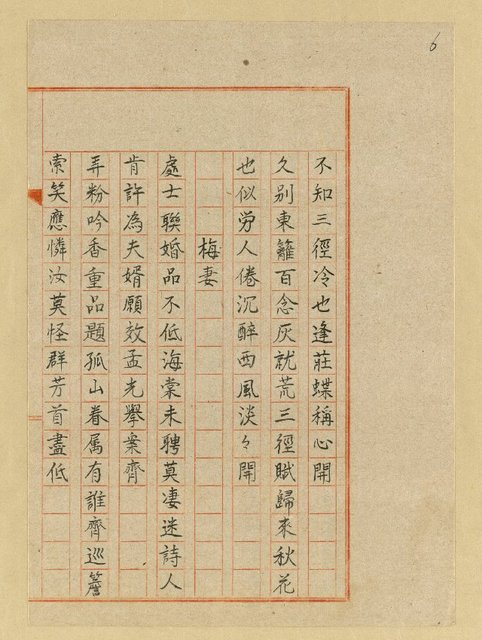 6
不知三徑冷也逢莊蝶稱心開
久別東籬百念灰就荒三徑賦歸來秋花
也似労人倦沉醉西風淡々開
梅妻
處士聯婚品不低海棠未聘莫凄迷詩人
肯許為夫婿願效孟光舉案齊
弄粉吟香重品題孤山眷属有誰齊巡簷
索笑應憐汝莫怪群芳首盡低